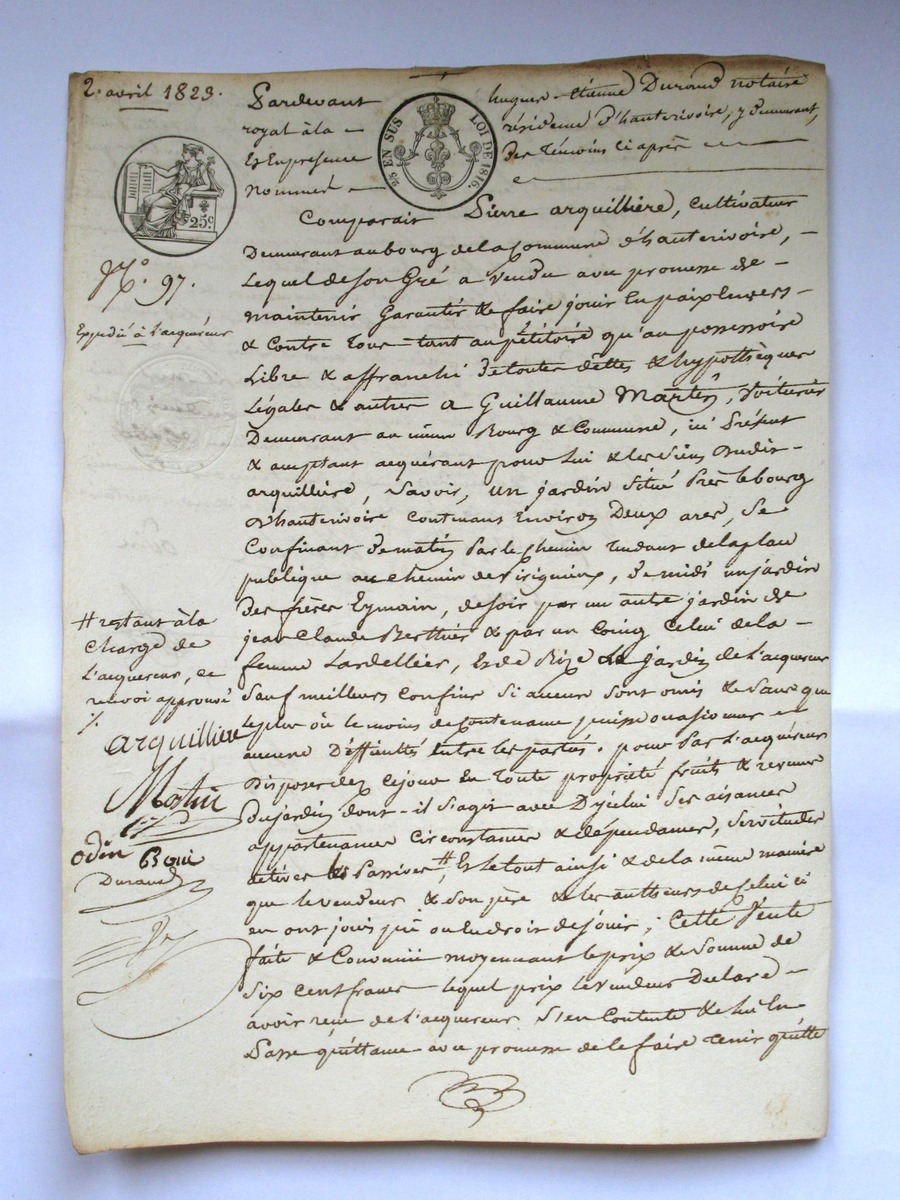 2. avril 1823.
Pardevant hugues-étienne Durand notaire
royal à la résidence d'hauterivoire, y demeurant,
Et En presence Des témoins ci après
nommés
25 EN SUS LOI DE 1816.
25c.
N.° 97.
Expédié à l'acquéreur
Comparait Pierre arquillière, cultivateur
Demeurant au bourg de la Commune d'hauterivoire,
Lequel de son Gré a vendu avec promesse de
maintenir Garantir & faire jouir En paix Envers
& Contre Tous tant au pétitoire qu'au possessoire
Libre & affranchi De toutes dettes & hypothèques
Légales & autres a Guillaume Martin, Voiturier
Demeurant au même Bourg & Commune, ici Présent
& acceptant acquérant pour Lui & les Siens Dudit
arquillière, Savoir, un jardin Situé Près le bourg
d'hauterivoire Contenant Environ Deux ares, Se
Confinant De matin Par le Chemin tendant de la place
publique au chemin de Virigneux, De midi un jardin
Des frères Eymain, de soir par un autre jardin de
jean Claude Berthier & par un Coing Celui de la
femme Lardellier, Et de Bize le jardin de l'acquereur
Sauf meilleurs Confins Si aucuns sont omis & Sans que
le plus ou le moins de Contenance puisse occasionner
aucune Difficultés Entre les parties. pour Par L'acquéreur
Disposer dez Cejour En Toute propriété fruits & revenus
Du jardin dont il S'agit avec D'ycelui Ses aisances
appartenances Circonstances & dépendances, Servitudes
actives & Passives #, Et le tout ainsi & de la même manière
que le vendeur & Son père & les autheurs de Celui ci
en ont joui pû ou En droit de jouir; Cette Vente
faite & Convenüe moyennant le prix & Somme de
Six Cent francs lequel prix le vendeur Declare
avoir reçu de L'acquereur S'en Contente & lui En
Passe quittance avec promesse de le faire Tenir quitte
# restant à la
Charge de
L'acquereur, ce
renvoi approuvé
arquilliere
Martin
odin Boni
Durand